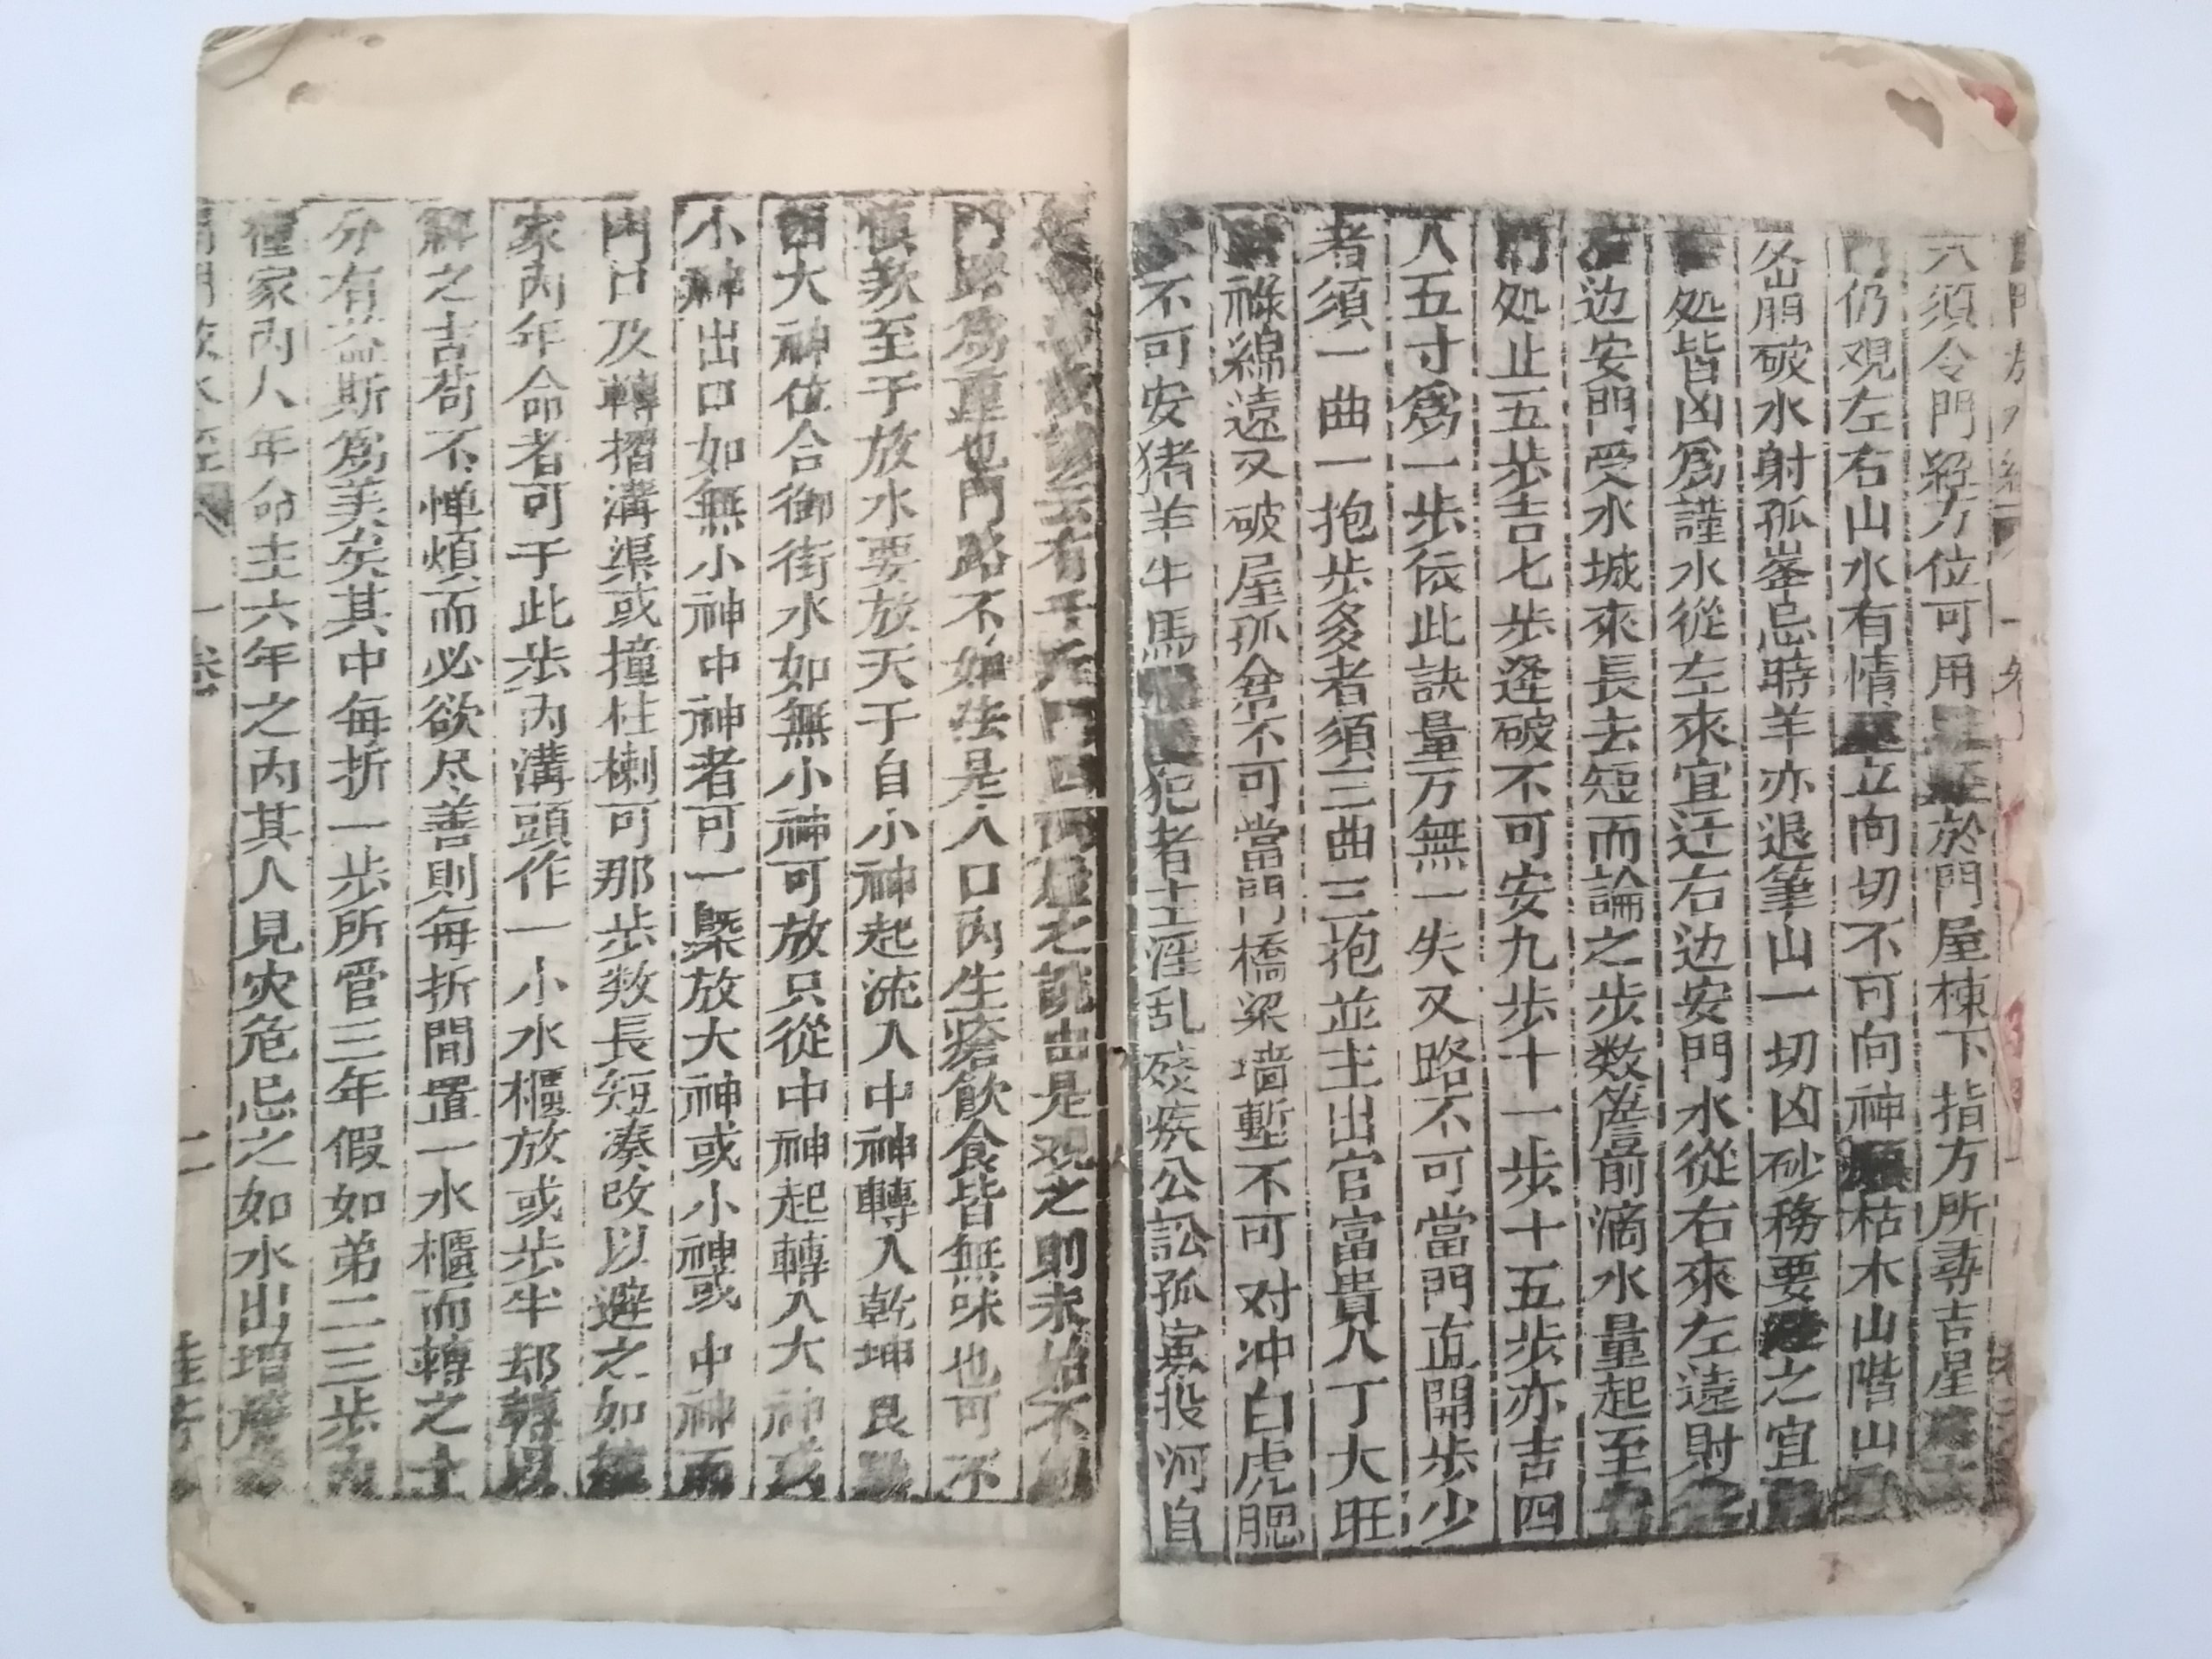 六須令門經方位可用於門屋棟下指方所尋吉星
門仍观左右山水有情立向切不可向神枯木山階山
崩破水射孤峯忌時羊亦退筆山一切凶砂務要之宜
处皆凶為謹水從左來宜迁右边安門水從右來左遠財
边安門受水城來長去短而論之步数簷前滴水量起至
門处止五步吉七步逢破不可安九步十一步十五步亦吉四
八五寸為一步依此訣量万無一失又路不可當門直開步少
者須一曲一抱步多者須三曲三抱並主出官富貴人丁大旺
祿綿遠又破屋孤贪不可當門橋梁墙塹不可对冲白虎腮
不可安猪羊牛馬犯者主淫乱殘疾公訟孤寡投河自
云有千斤門四兩屋之說由是观之則未始不
門路為重也門路不如法是人口內生瘡飲食皆無味也可不
慎欤至于放水要放天于自小神起流入中神轉入乾坤艮
大神位合御街水如無小神可放只從中神起轉入大神或
小神出口如無小神中神者可一槩放大神或小神或中神而
門口及轉摺溝渠或撞柱楋可那步数長短凑改以避之如
家內年命者可于此步內溝頭作一小水櫃放或步半却轉以
觧之吉苟不惮煩而必欲尽善則每折間置一水櫃而轉之
分有益斯為美矣其中每折一步所管三年假如第二三步
種家內人年命主六年之內其人見災危忌之如水出
門放水經 一卷 二